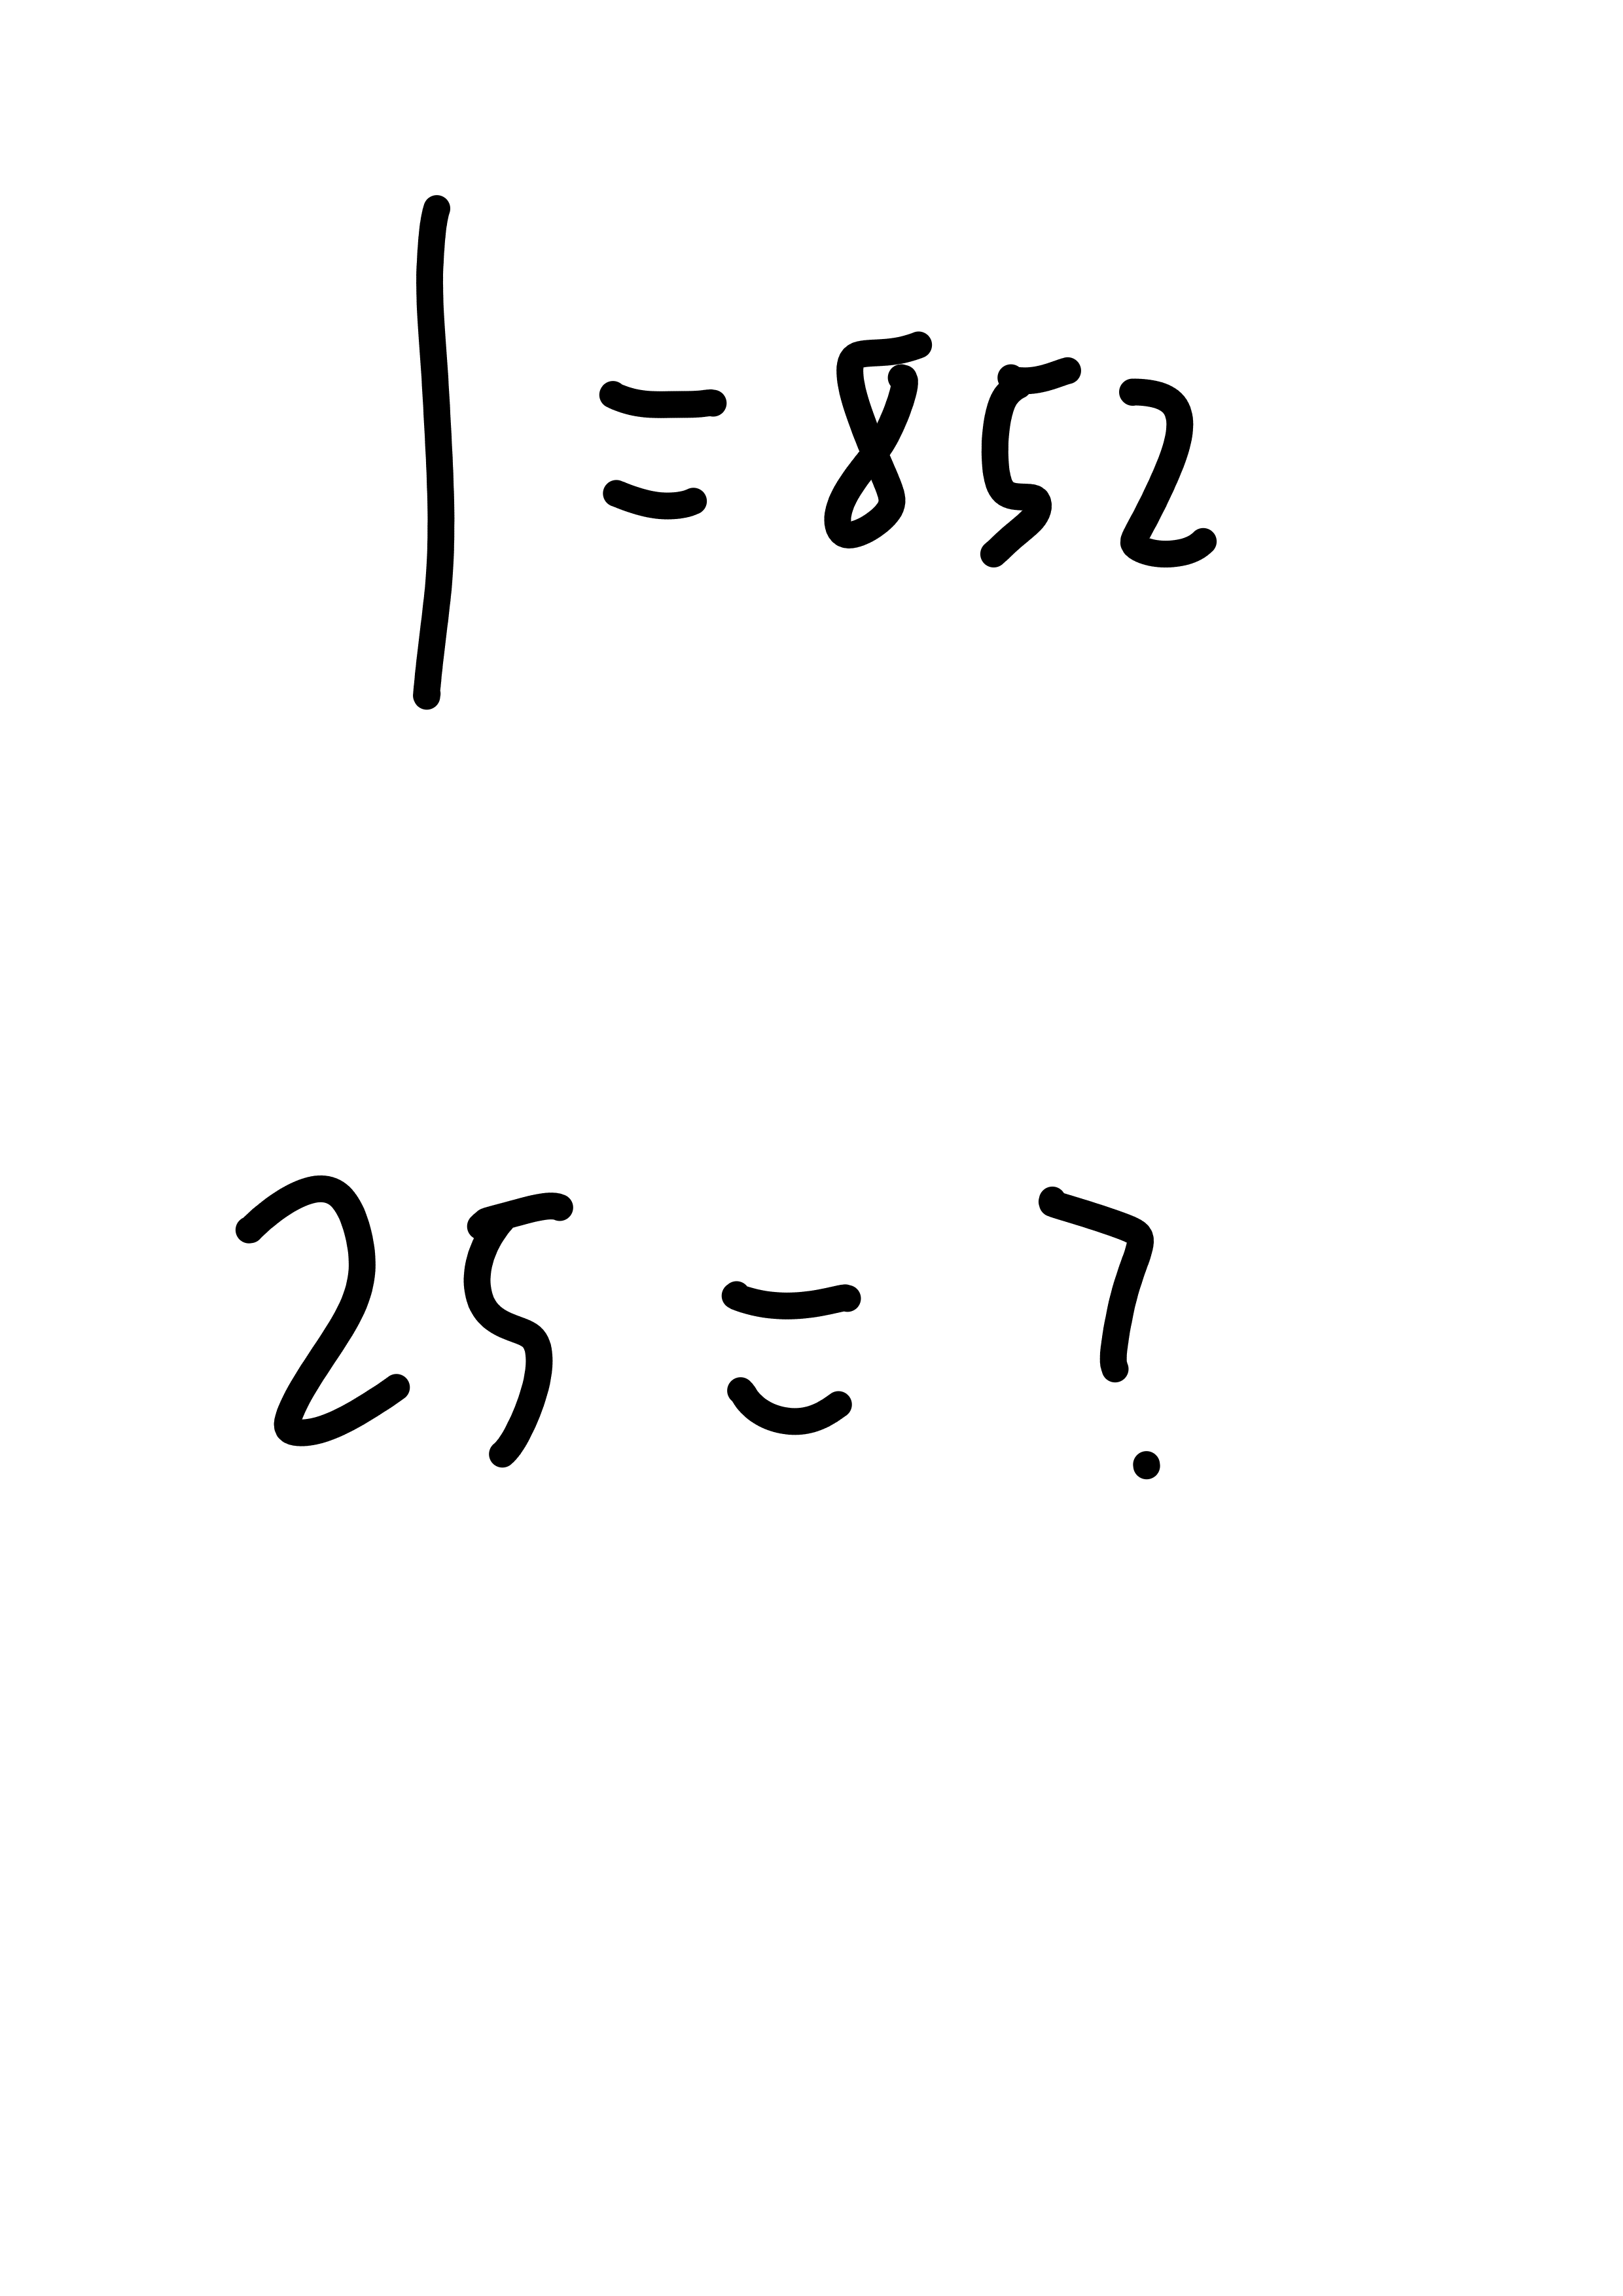 1 = 852
25 = ?